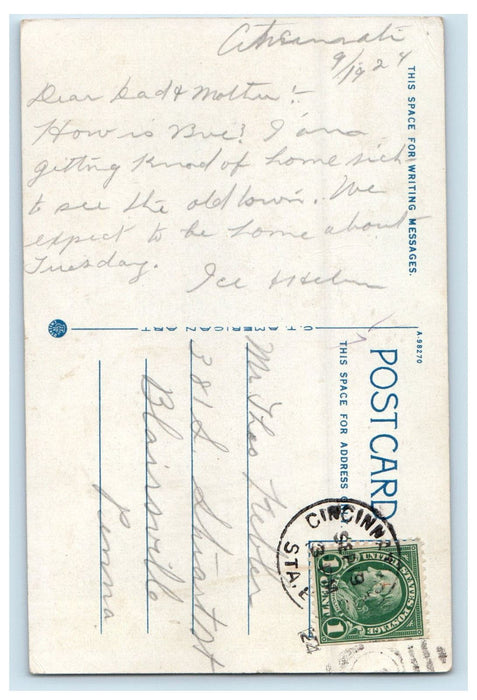 Cincinnati
9/1924
Dear Dad & Mother:-
How is Bue? I am
getting kind of home sick
to see the old town. We
expect to be home about
Tuesday.
THIS SPACE FOR WRITING MESSAGES.
C.T. AMERICAN ART
A-98270
POST CARD
THIS SPACE FOR ADDRESS
Mr Thos
381 S Stuart St
Blairsville
Penna
CINCINN
SEP 9
3 PM
24
STA.E
UNITED STATES POSTAGE
1 CENT 1